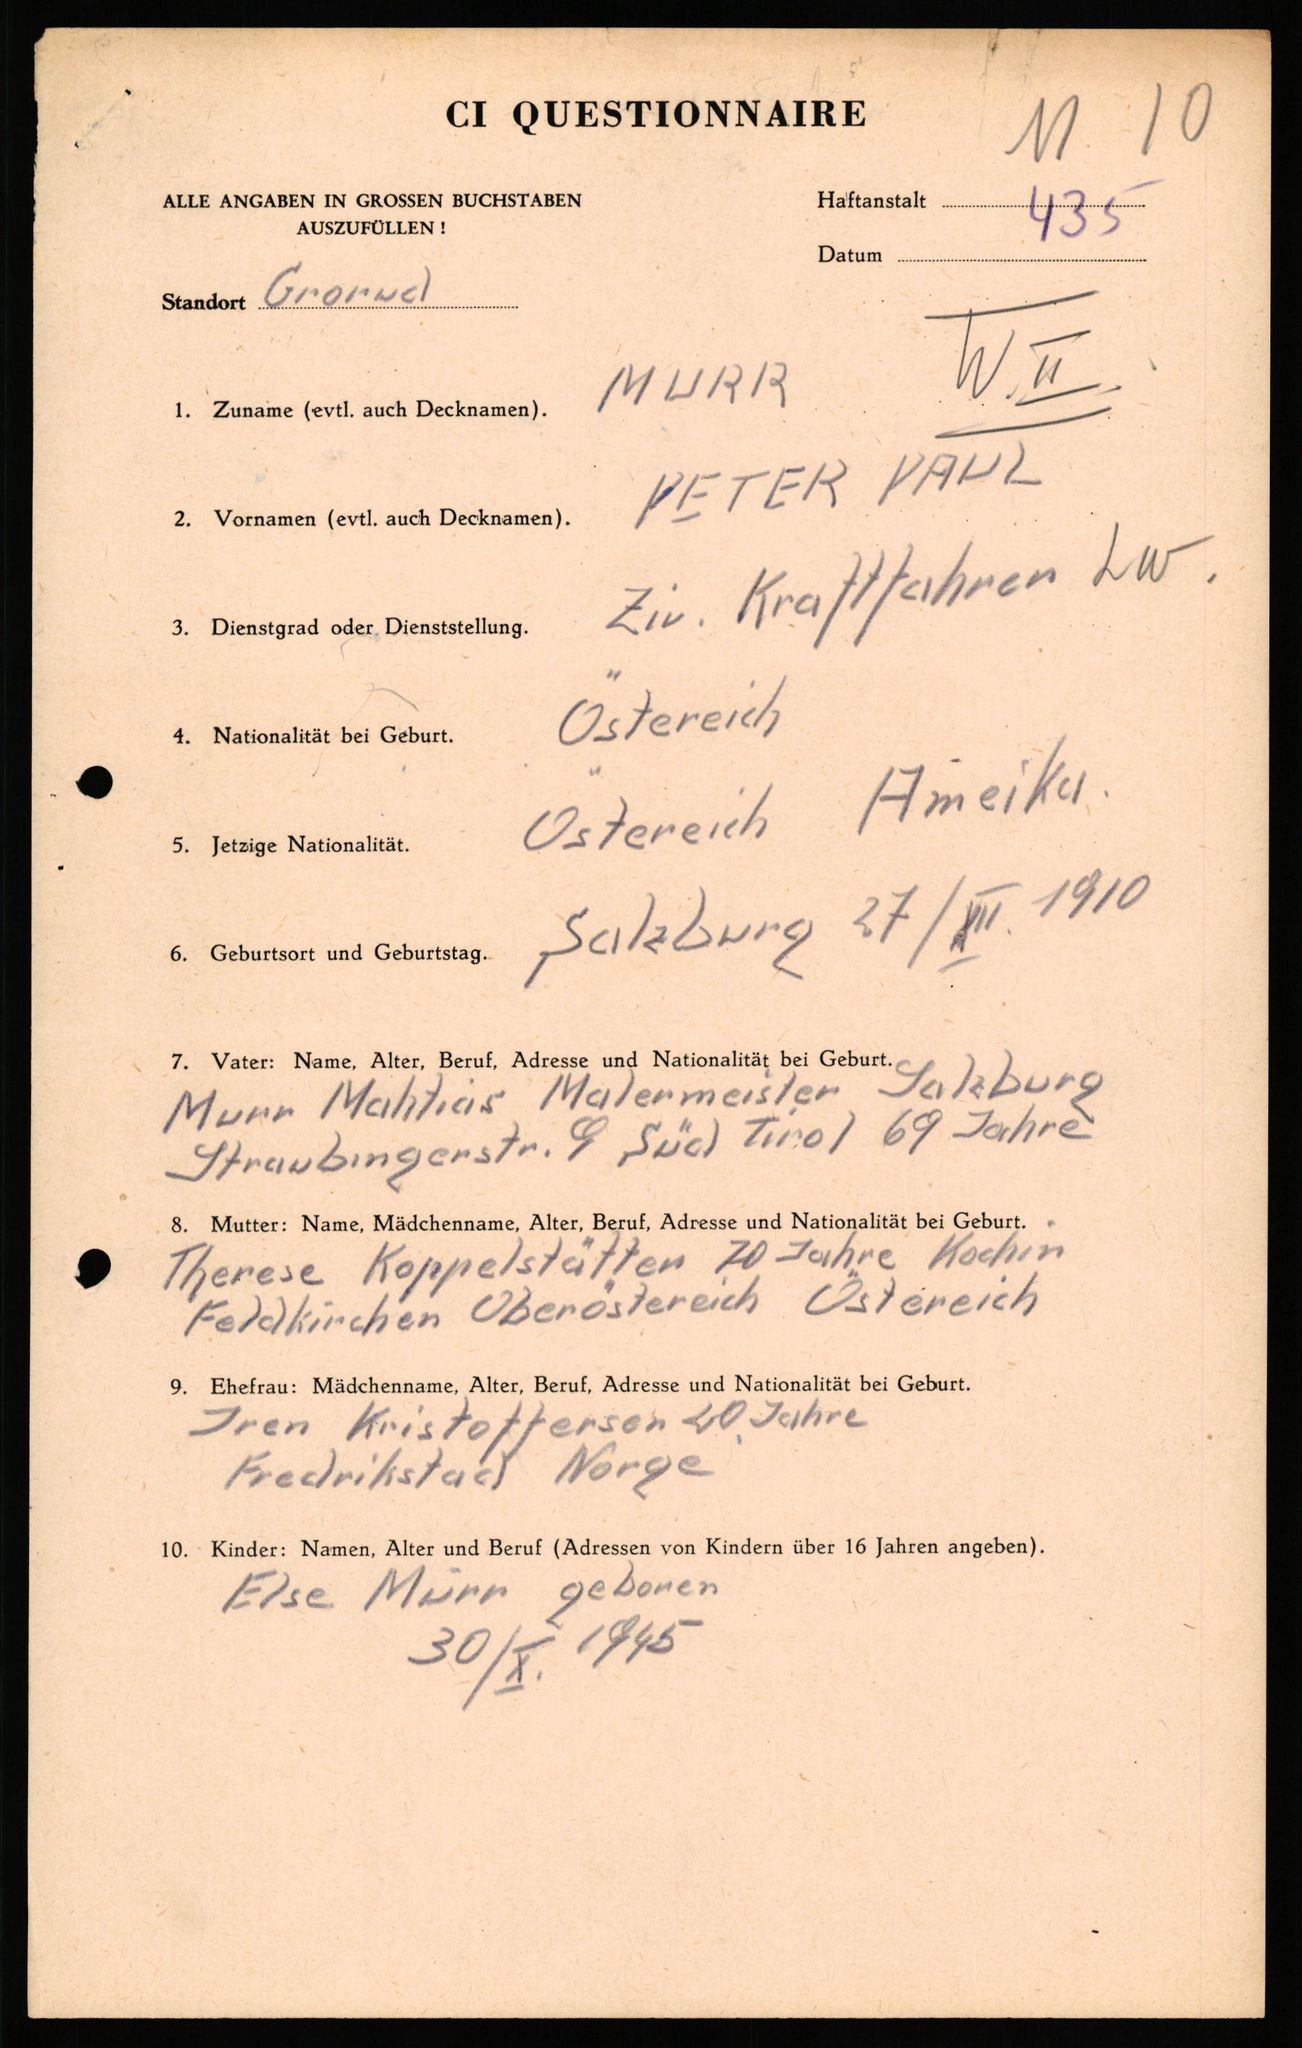 CI QUESTIONNAIRE
M 10
ALLE ANGABEN IN GROSSEN BUCHSTABEN
AUSZUFÜLLEN !
Haftanstalt
435
Datum
Standort Grorud
W. II.
1. Zuname (evtl. auch Decknamen). MURR
2. Vornamen (evtl. auch Decknamen). PETER PAUL
3. Dienstgrad oder Dienststellung. Ziv. Kraftfahrer LW.
4. Nationalität bei Geburt. Östereich
5. Jetzige Nationalität. Östereich Ameika.
6. Geburtsort und Geburtstag. Salzburg 27/XII. 1910
7. Vater: Name, Alter, Beruf, Adresse und Nationalität bei Geburt.
Murr Mahtias Malermeister Salzburg
Straubingerstr. 9 Süd Tirol 69 Jahre
8. Mutter: Name, Mädchenname, Alter, Beruf, Adresse und Nationalität bei Geburt.
Therese Koppelstätter 70 Jahre Kochin
Feldkirchen Oberöstereich Östereich
9. Ehefrau: Mädchenname, Alter, Beruf, Adresse und Nationalität bei Geburt.
Iren Kristoffersen 20 Jahre
Fredrikstad Norge
10. Kinder: Namen, Alter und Beruf (Adressen von Kindern über 16 Jahren angeben).
Else Murr geboren
30/X. 1945